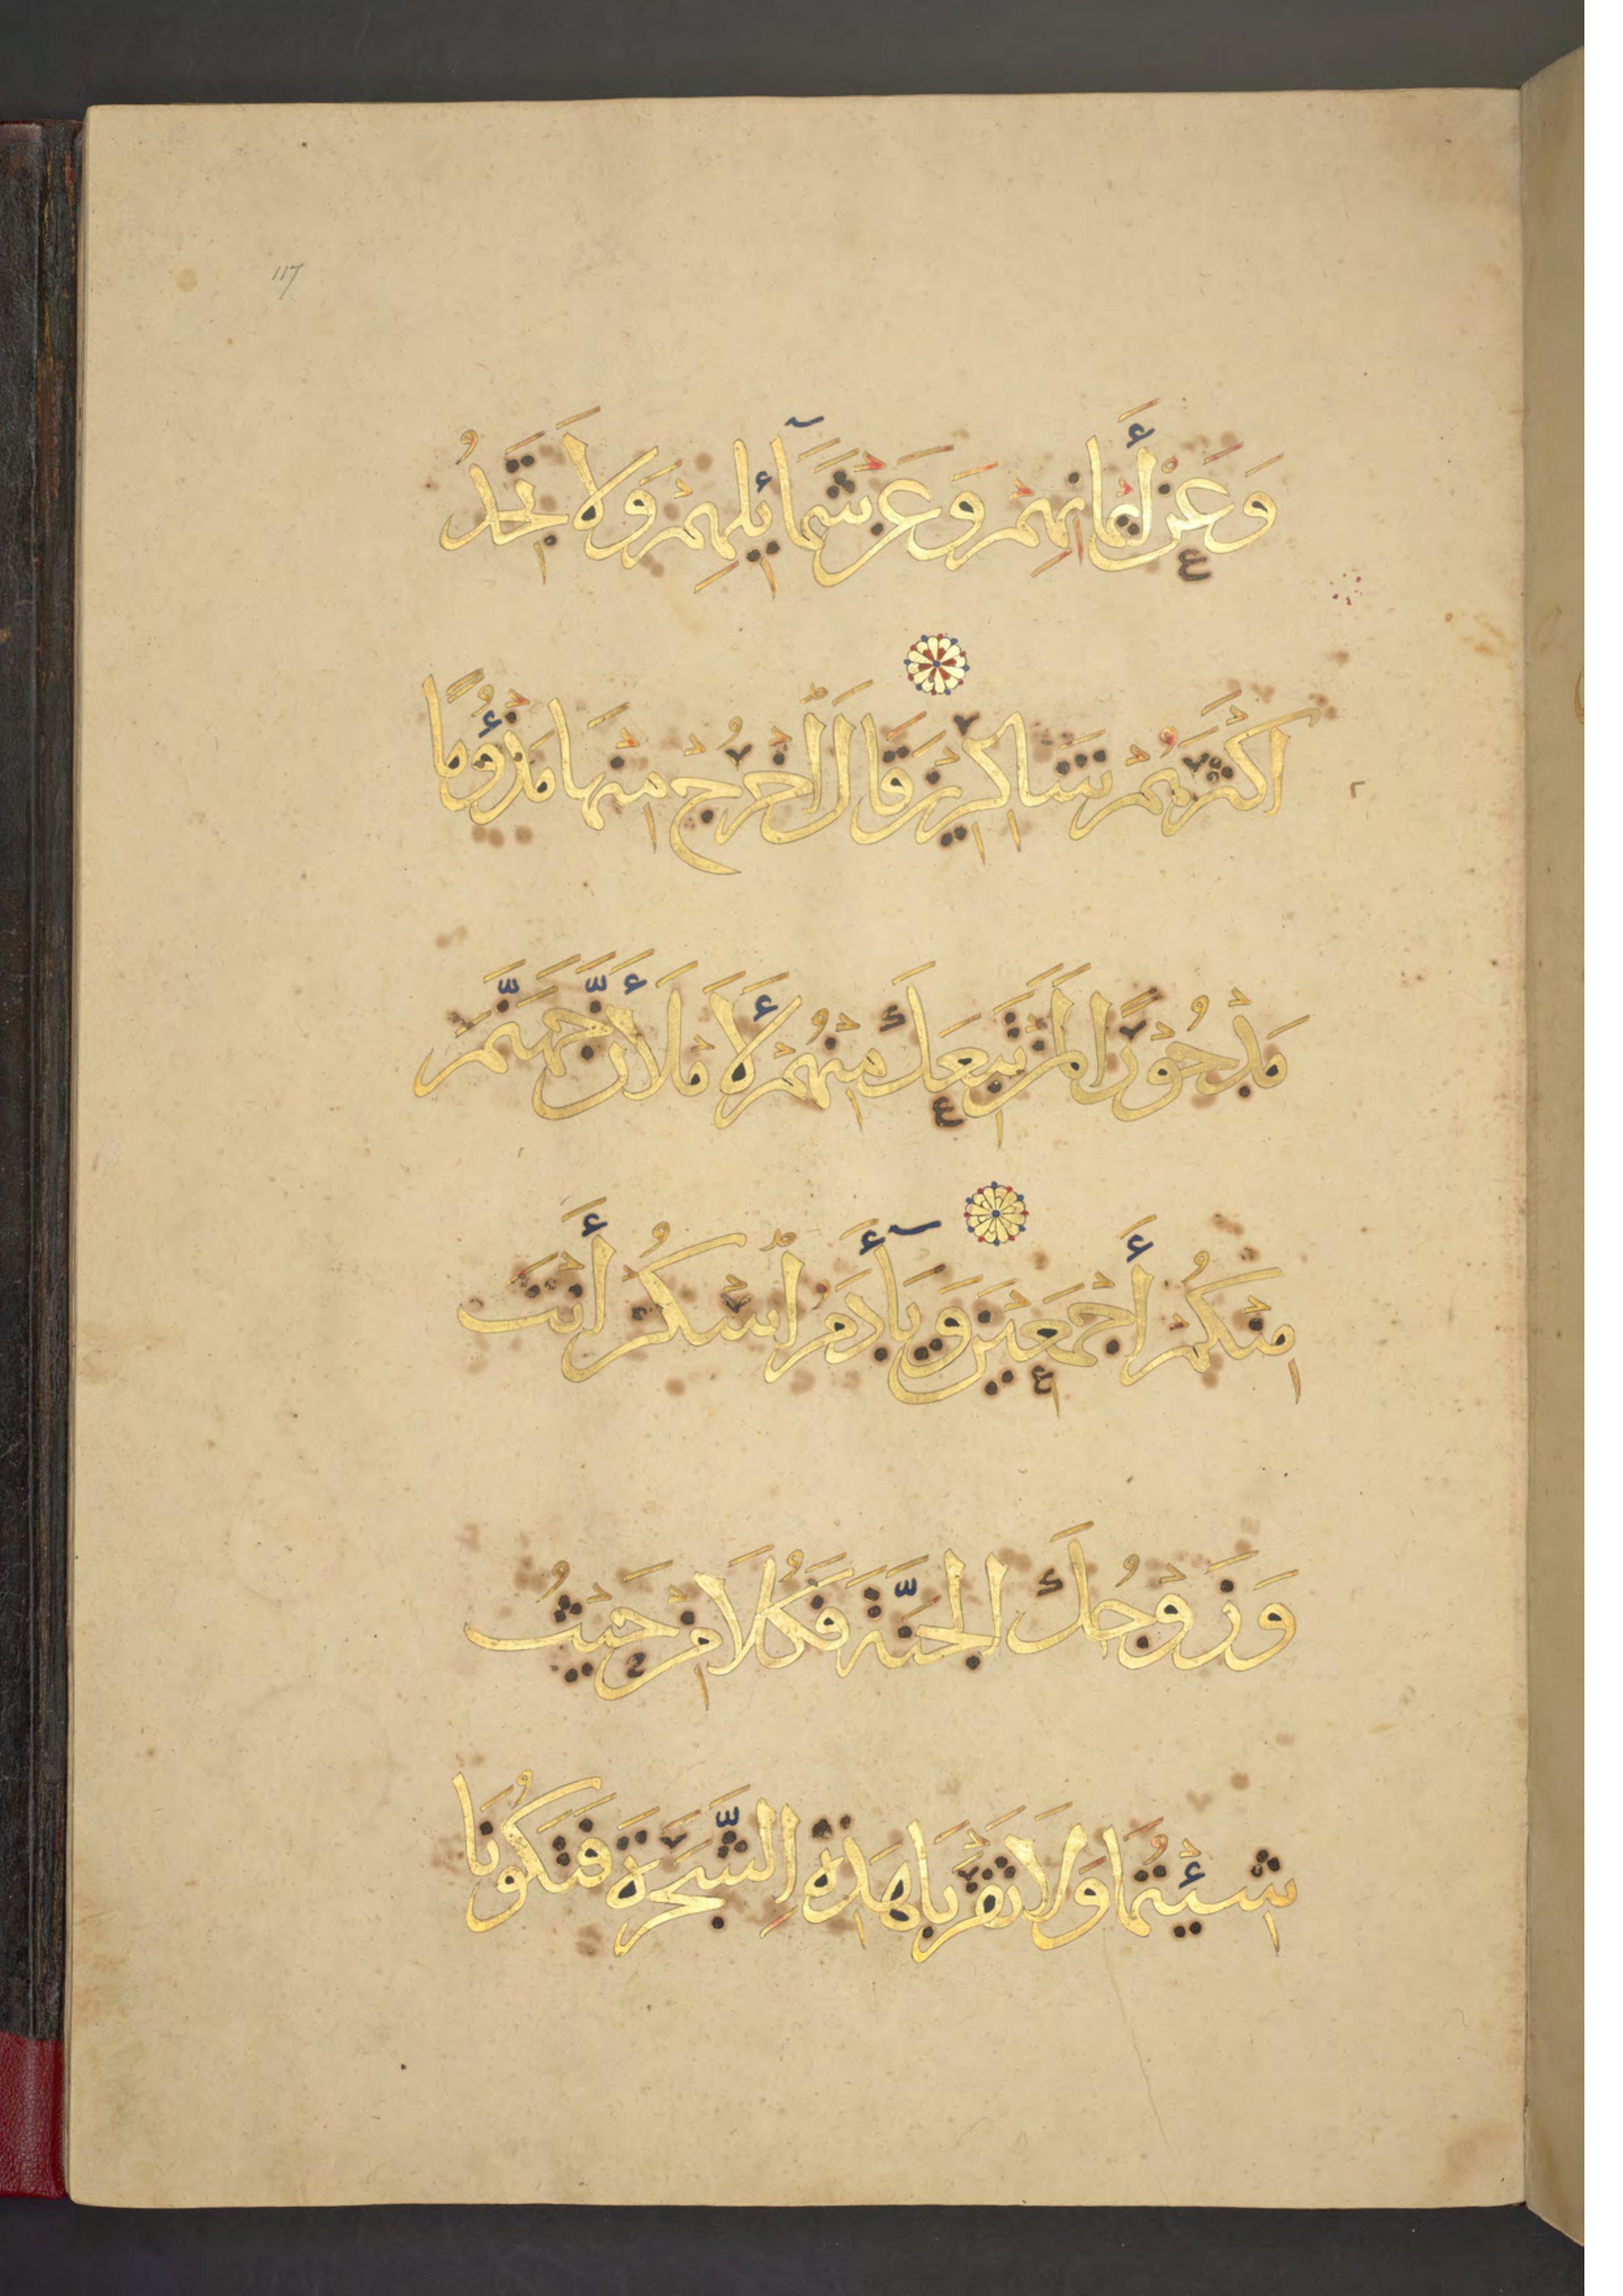 117
وَعَنْ أَيْمَانِهِمْ وَعَنْ شَمَآئِلِهِمْ وَلَا تَجِدُ
أَكْثَرَهُمْ شَاكِرِينَ قَالَ ٱخْرُجْ مِنْهَا مَذْؤُمًا
مَدْحُورًا لَمَنْ تَبِعَكَ مِنْهُمْ لَأَمْلَأَنَّ جَهَنَّمَ
مِنْكُمْ أَجْمَعِينَ وَيَآأَدَمُ ٱسْكُنْ أَنْتَ
وَزَوْجُكَ الْجَنَّةَ فَكُلَا مِنْ حَيْثُ
شِئْتُمَا وَلَا تَقْرَبَا هَذِهِ الشَّجَرَةَ فَتَكُونَا